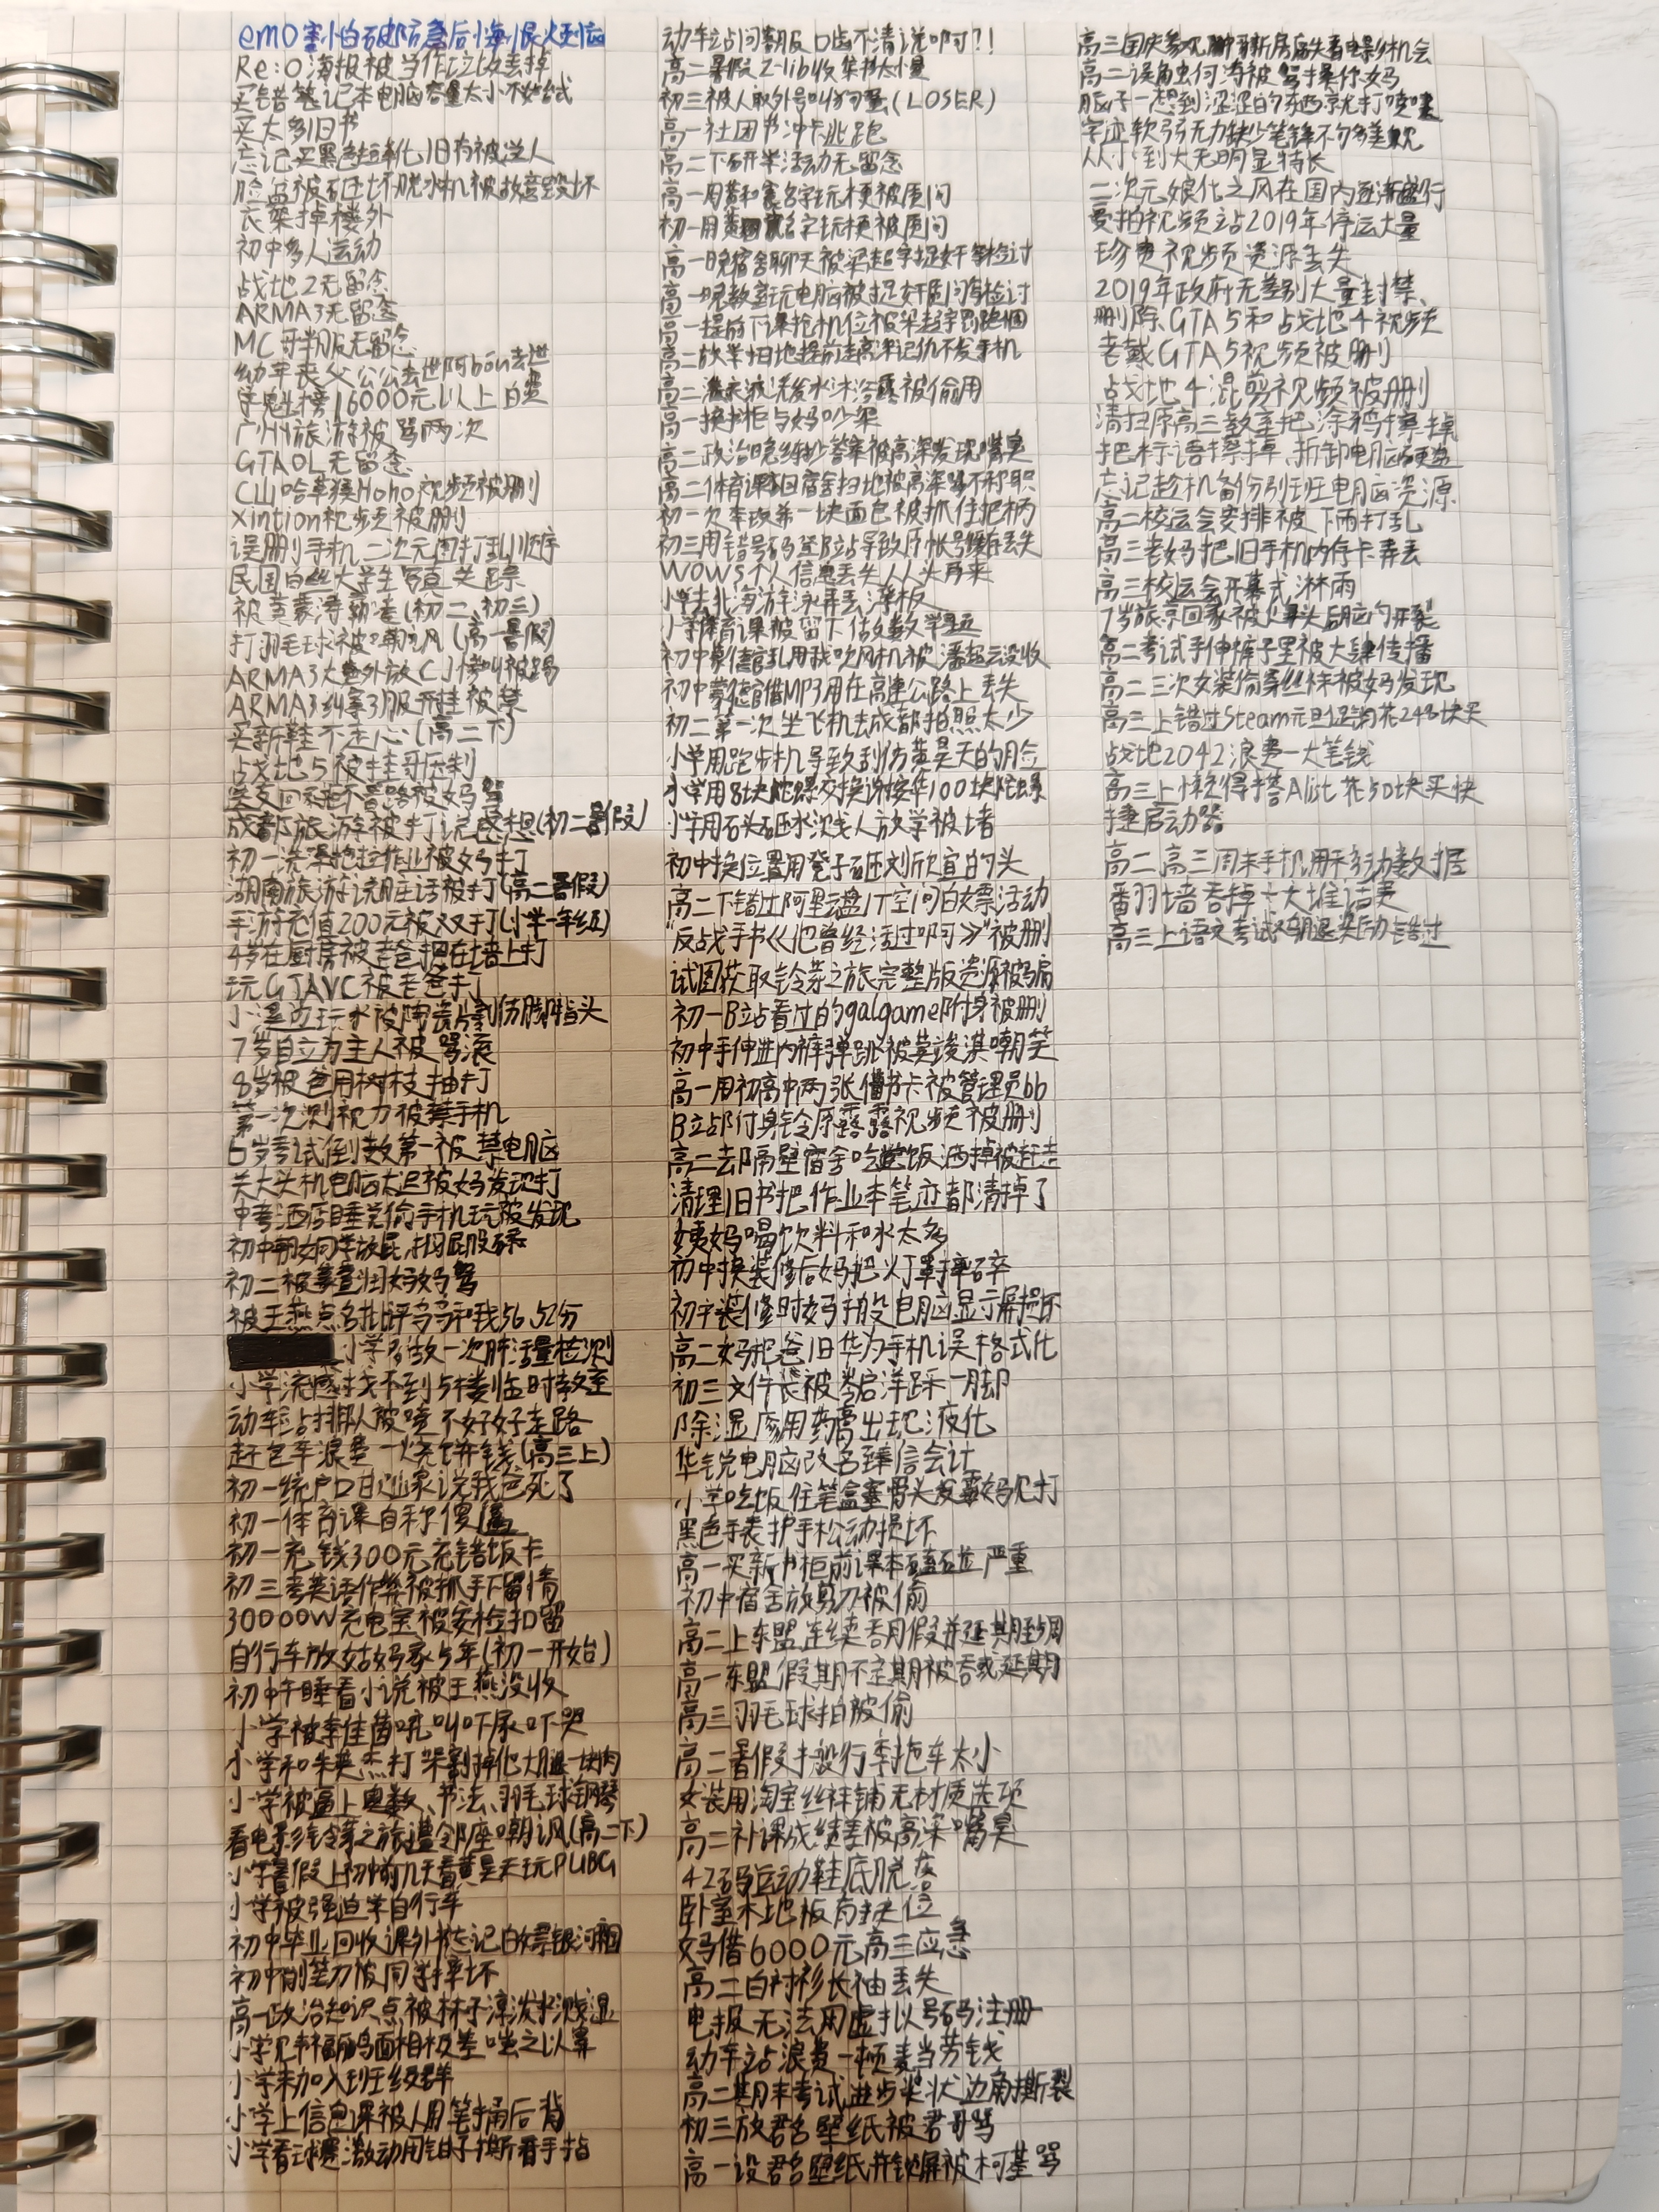 Re:0海报被当作垃圾丢掉
买错笔记本电脑容量太小不如台式
买太多旧书
忘记买黑色短靴化旧有被送人
脸盆被砸坏脱水机被故意毁坏
衣架掉楼外
初中多人运动
战地2无留念
ARMA3无留念
MC 服无留念
幼年丧父公公去世阿 去世
榜16000元以上白费
广州旅游被骂两次
GTAOL无留念
C山哈草猴Homo视频被删
Xintion视频被删
误删手机二次元图打乱顺序
民国白丝大学生写真失踪
被黄豪涛霸凌(初二、初三)
打羽毛球被嘲讽(高一暑假)
ARMA3大意外放CJ惨叫被踢
ARMA3纠察3服开挂被禁
买新鞋不走心(高二下)
战地5被挂哥压制
回家 不看路被妈骂
成都旅游被打说感想(初二暑假)
初一洗澡拖拉作业被妈打
湖南旅游说脏话被打(高二暑假)
手游充值200元被双打(小学一年级)
4岁在厨房被老爸把在墙上打
玩GTAVC被老爸打
小溪边玩水被陶瓷片割伤脚指头
7岁自立为主人被骂滚
8岁被爸用树枝抽打
第一次测视力被禁手机
6岁考试倒数第一被禁电脑
关大头机电脑太迟被妈发现打
中考酒店睡觉偷手机玩被发现
初中朝女同学放屁,
初二被 妈骂
被王燕点名批评 和我56,52分
小学多做一次肺活量检测
小学流感找不到5楼临时教室
动车站排队被喷不好好走路
赶包车浪费一烧饼钱(高三上)
初一统户口 说我爸死了
初一体育课自称傻逼
初一充钱300元充错饭卡
初三考英语作弊被抓手下留情
30000W充电宝被安检扣留
自行车放姑妈家5年(初一开始)
初中午睡看小说被王燕没收
小学被李佳茵吼叫吓尿吓哭
小学和朱英杰打架割掉他大腿一块肉
小学被逼上奥数、书法、羽毛球、钢琴
看电影铃芽之旅遭邻座嘲讽(高二下)
小学暑假上初中前几天看黄昊天玩PUBG
小学被强迫学自行车
初中毕业回收课外书忘记白嫖银河帝国
初中削笔刀被同学摔坏
高一政治知识点被林子淳泼水溅湿
小学 面相极差嗤之以鼻
小学未加入班级群
小学上信息课被人用笔捅后背
小学看球赛激动用钳子撕着手指
动车站问客服口齿不清说啊?!
高二暑假Z-lib收集书太少量
初三被人取外号叫 (LOSER)
高一社团节冲卡逃跑
高二下研学活动无留念
高一用黄和 名字玩梗被质问
初一用黄 名字玩梗被质问
高一晚宿舍聊天被梁超宇捉奸 检讨
高一晚教室玩电脑被捉奸质问写检讨
高一提前下课抢机位被梁超宇罚跑圈
高二放学扫地提前走高深记仇不发手机
高二 洗发水沐浴露被偷用
高一换书柜与妈吵架
高二政治晚练抄答案被高深发现嘴臭
高二体育课 回宿舍扫地被高深骂不称职
初一欠李政弟一块面包被抓住把柄
初三用错号码登B站导致原帐号缓存丢失
WOWS个人信息丢失从头再来
小学去北海游泳弄丢浮板
小学体育课被留下做数学题
初中蒙德官乱用我吹风机被潘 没收
初中蒙德官借MP3用在高速公路上丢失
初二第一次坐飞机去成都拍照太少
小学用跑步机导致刮伤黄昊天的脸
小学用8块陀螺交换谢桉华100块陀螺
小学用石头砸水溅人放学被堵
初中换位置用凳子砸刘欣宜的头
高二下错过阿里云盘1T空间白嫖活动
“反战手书《他曾经活过啊》”被删
试图获取铃芽之旅完整版资源被骗
初一B站看过的galgame附身被删
初中手伸进内裤弹跳被莫浚淇嘲笑
高一用初高中两张借书卡被管理员bb
B站附身铃原露露视频被删
高二去隔壁宿舍吃饭洒掉被赶走
清理旧书把作业本笔迹都清掉了
姨妈喝饮料和水太多
初中换装修后妈把灯罩摔碎
初中装修时妈搬电脑显示屏损坏
高二妈把爸旧华为手机误格式化
初三文件袋被岑启洋踩一脚
除湿 用药膏出现液化
华锐电脑改名臻信会计
小学吃饭往笔盒塞骨头发霉妈见打
黑色手表护手松动损坏
高一买新书柜前课本磕碰严重
初中宿舍放剪刀被偷
高二上东盟连续吞月假并延期至5周
高一东盟假期不定期被吞或延期
高三羽毛球拍被偷
高二暑假搬行李拖车太小
女装用淘宝丝袜铺无材质选项
高二补课成绩差被高深嘴臭
42码运动鞋底脱落
卧室木地板有缺位
妈借6000元高三应急
高二白衬衫长袖丢失
电报无法用虚拟号码注册
动车站浪费一顿麦当劳钱
高二期末考试进步奖状边角撕裂
初三放君名壁纸被君哥骂
高一设君名壁纸并锁屏被柯基骂
高三国庆参观 新房痛失看电影机会
高二误触虫何涛被骂操你妈
脑子一想到涩涩的东西就打喷嚏
字迹软弱无力缺少笔锋不匀多差观
从小到大无明显特长
二次元娘化之风在国内逐渐盛行
曼拍视频站2019年停运大量
珍贵视频资源丢失
2019年政府无差别大量封禁、
删除GTA5和战地4视频
老戴GTA5视频被删
战地4混剪视频被删
清扫原高三教室把涂鸦擦掉
把标语擦掉、拆卸电脑硬盘
忘记趁机备份别班电脑资源
高二校运会安排被下雨打乱
高三老妈把旧手机内存卡弄丢
高三校运会开幕式淋雨
7岁旅京回家被 头后脑勺开裂
高二考试手伸裤子里被大肆传播
高二三次女装偷穿丝袜被妈发现
高三上错过Steam元旦促销花248块买
战地2042浪费一大笔钱
高三上懒得搭Alist花50块买快
捷启动器
高二高三周末手机用移动数据
翻墙吞掉一大堆话费
高三上语文考试 错过